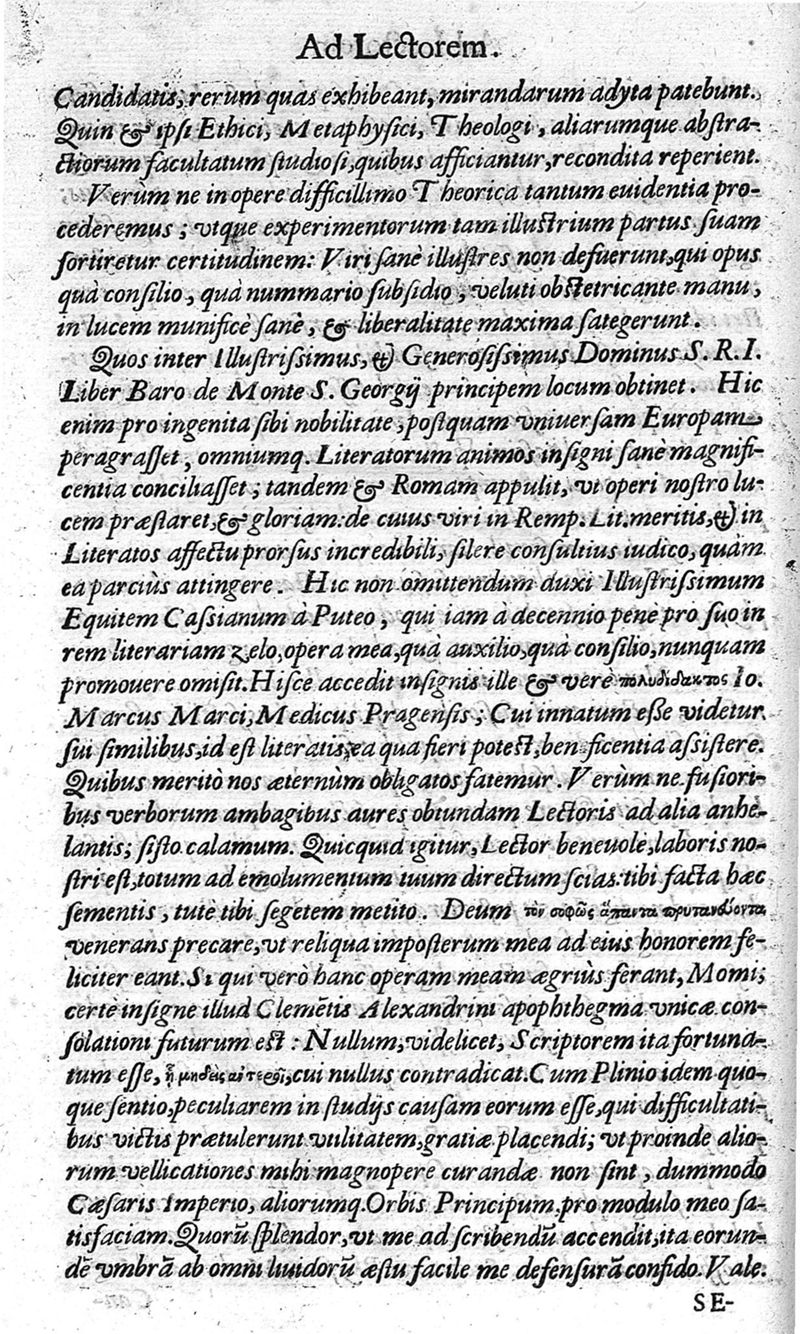 Ad Lectorem.
Candidatis, rerum quas exhibeant, mirandarum adyta patebunt.
Quin & ipsi Ethici, Metaphysici, Theologi, aliarumque abstra-
ctiorum facultatum studiosi, quibus afficiantur, recondita reperient.
Verùm ne in opere difficillimo Theorica tantum euidentia pro-
cederemus; vtque experimentorum tam illustrium partus suam
sortiretur certitudinem: Viri sanè illustres non defuerunt, qui opus
quà consilio, quà nummario subsidio, veluti obstetricante manu,
in lucem munificè sanè, & liberalitate maxima sategerunt.
Quos inter Illustrissimus, & Generosissimus Dominus S. R. I.
Liber Baro de Monte S. Georgij principem locum obtinet. Hic
enim pro ingenita sibi nobilitate, postquam vniuersam Europam
peragrasset, omniumq. Literatorum animos insigni sanè magnifi-
centia conciliasset; tandem & Romam appulit, vt operi nostro lu-
cem præstaret, & gloriam: de cuius viri in Remp. Lit. meritis, & in
Literatos affectu prorsus incredibili, silere consultius iudico, quàm
ea parciùs attingere. Hic non omittendum duxi Illustrissimum
Equitem Cassianum à Puteo, qui iam à decennio penè pro suo in
rem literariam zelo, opera mea, quà auxilio, quà consilio, nunquam
promouere omisit. Hisce accedit insignis ille & verè πολυδίδακτος Io.
Marcus Marci, Medicus Pragensis; Cui innatum esse videtur
sui similibus, id est literatis, ea qua fieri potest, ben ficentia assistere.
Quibus meritò nos æternùm obligatos fatemur. Verùm ne fusiori-
bus verborum ambagibus aures obtundam Lectoris ad alia anhe-
lantis; sisto calamum. Quicquid igitur, Lector beneuole, laboris no-
stri est, totum ad emolumentum tuum directum scias: tibi facta hæc
sementis, tutè tibi segetem metito. Deum τὸν σοφῶς ἅπαντα πρυτανεύοντα
venerans precare, vt reliqua imposterum mea ad eius honorem fe-
liciter eant. Si qui verò hanc operam meam ægriùs ferant, Momi;
certè insigne illud Clemẽtis Alexandrini apophthegma vnicæ con-
solationi futurum est: Nullum, videlicet, Scriptorem ita fortuna-
tum esse, ᾗ μηδεὶς cui nullus contradicat. Cum Plinio idem quo-
que sentio, peculiarem in studijs causam eorum esse, qui difficultati-
bus victis prætulerunt vtilitatem, gratiæ placendi; vt proinde alio-
rum vellicationes mihi magnopere curandæ non sint, dummodo
Cæsaris Imperio, aliorumq. Orbis Principum, pro modulo meo sa-
tisfaciam. Quorũ splendor, vt me ad scribendũ accendit, ita eorun-
dẽ vmbrã ab omni liuidorũ æstu facile me defensurã confido. Vale.
SE-